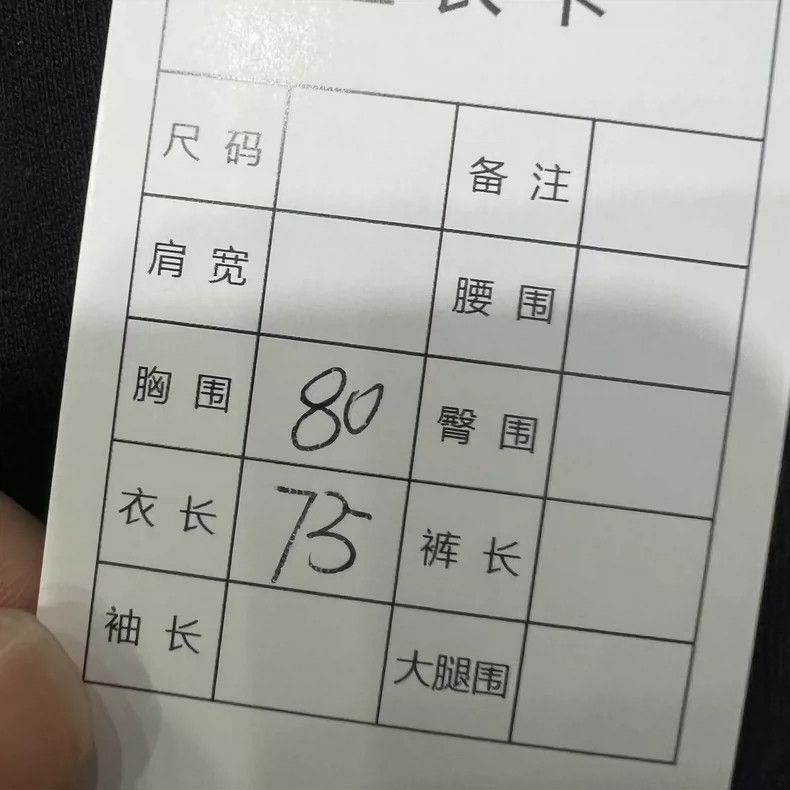 尺码 备注
肩宽 腰围
胸围 80 臀围
衣长 75 裤长
袖长 大腿围